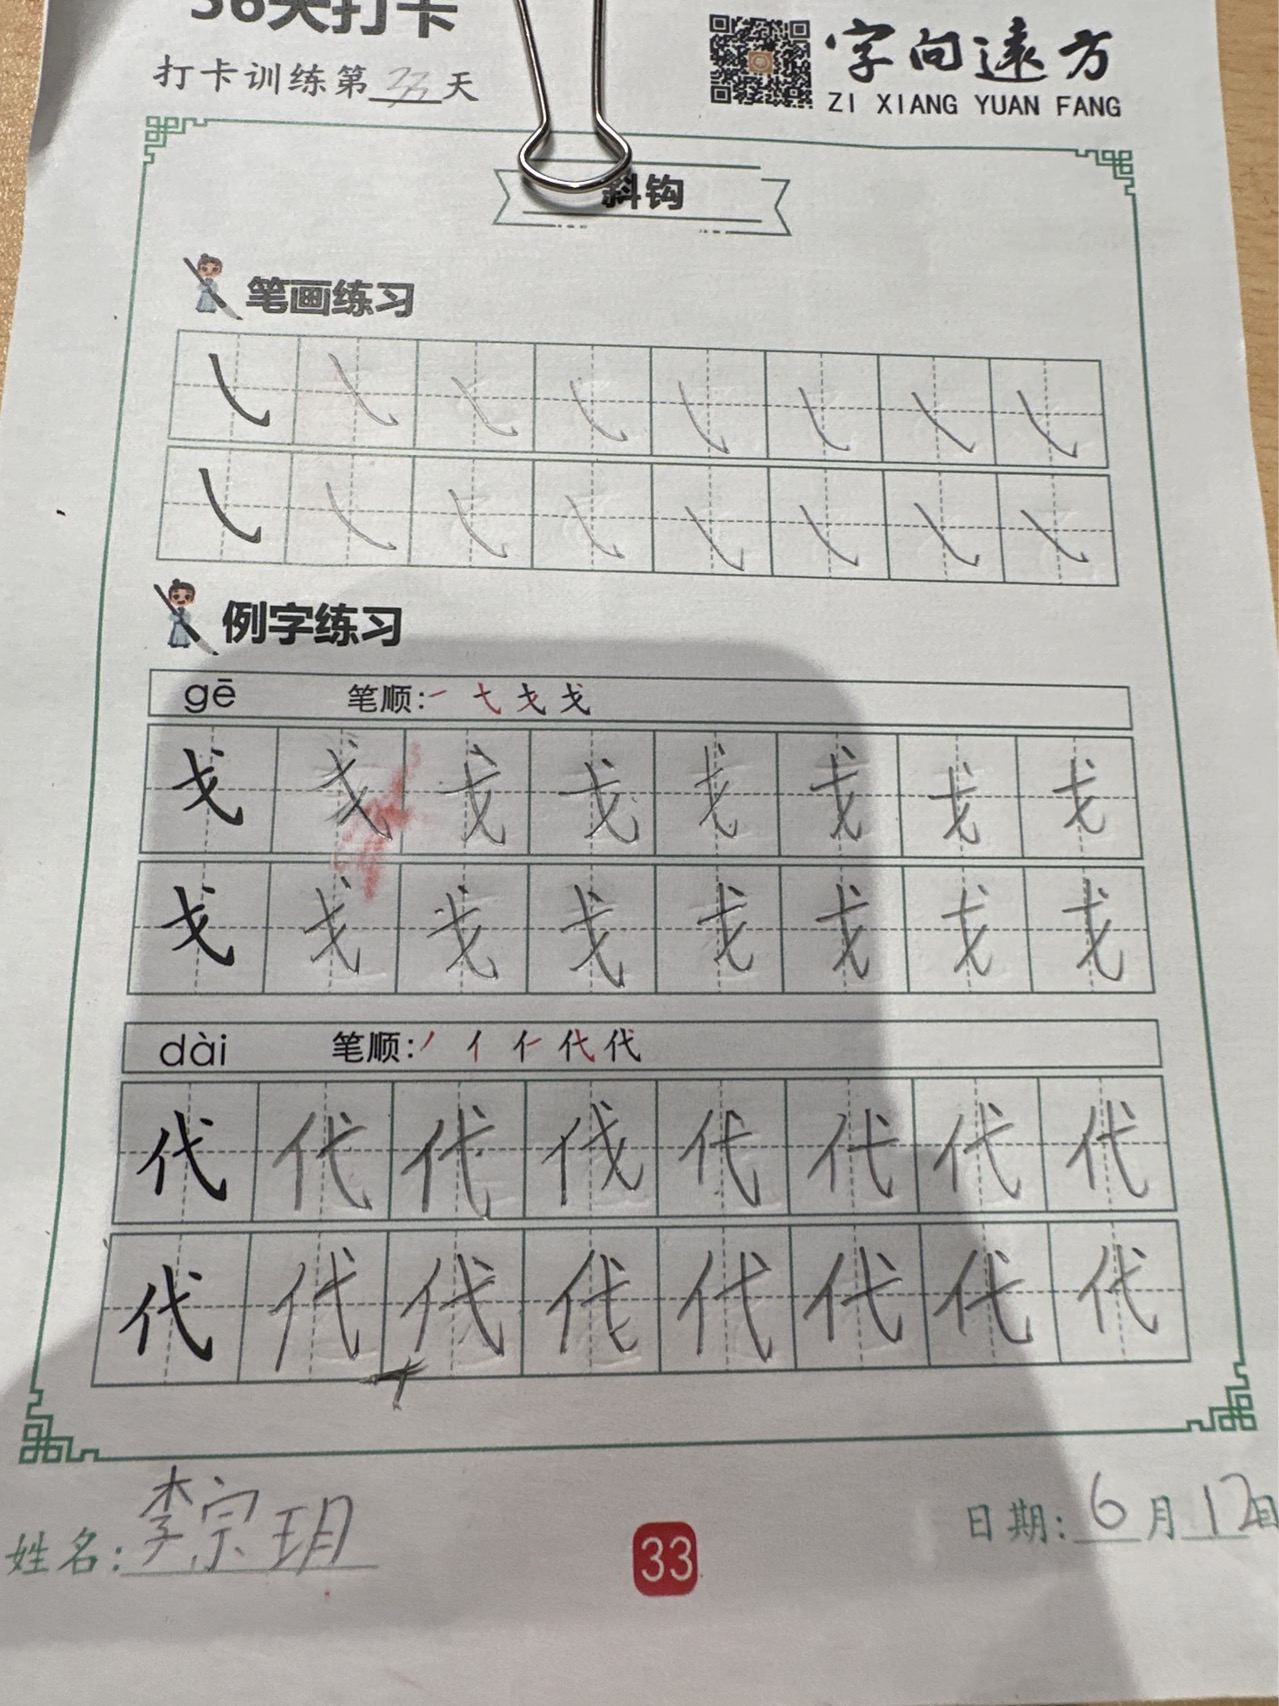 36天打卡
打卡训练第33天
字向远方
ZI XIANG YUAN FANG
斜钩
笔画练习
例字练习
gē 笔顺:一 弋 戈 戈
戈 戈 戈 戈 戈 戈 戈 戈
戈 戈 戈 戈 戈 戈 戈 戈
dài 笔顺:丿 亻 仁 代 代
代 代 代 伐 代 代 代 代
代 代 代 代 代 代 代 代
姓名:李宗玥
33
日期:6月12日